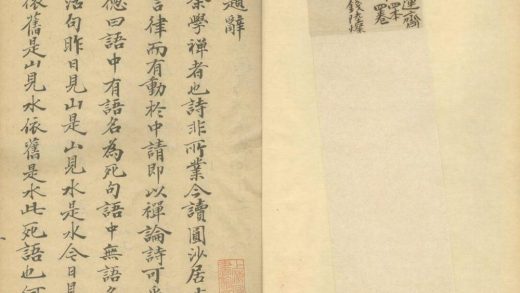 蓮齋
四本
四卷
錢陸燦
題辭
余學禪者也詩非所業今讀圓沙居士
言律而有動於中請即以禪論詩可乎
德曰語中有語名為死句語中無語名
活句昨日見山是山見水是水今日見
依舊是山見水依舊是水此死語也何